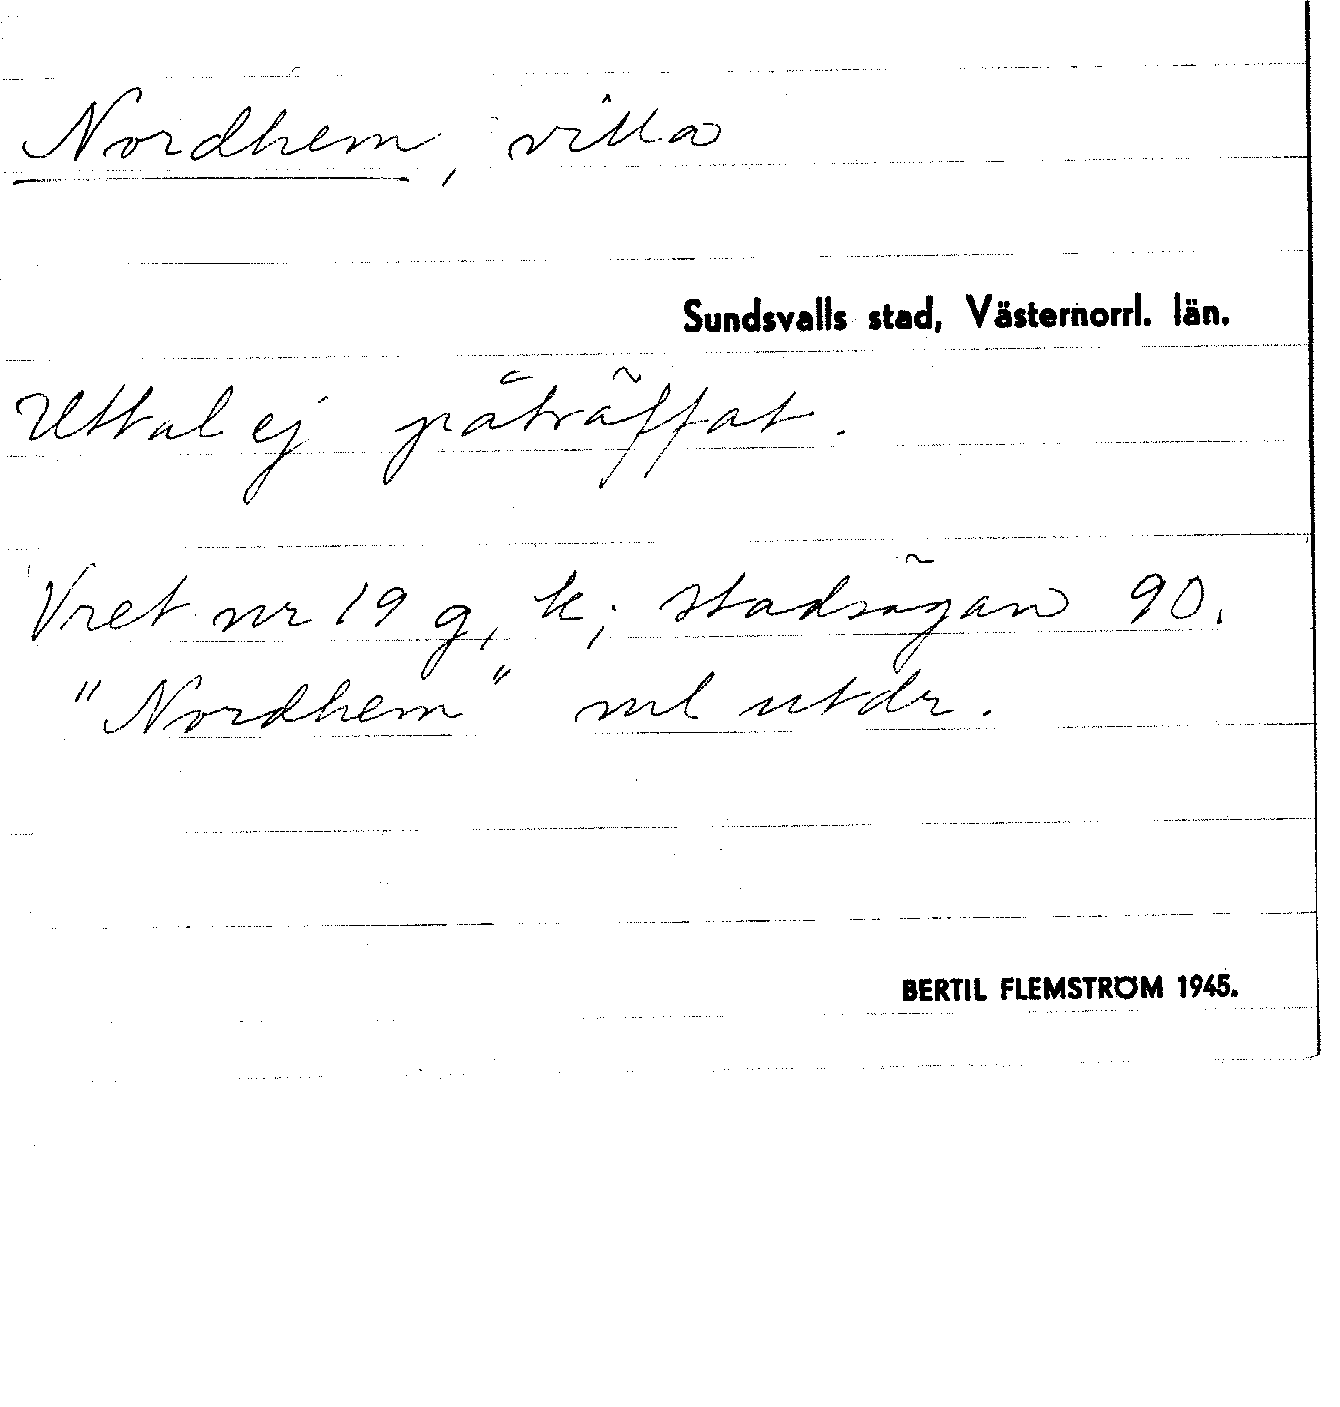 Nordhem, villa
Sundsvalls stad, Västernorrl. län.
Uttal ej påträffat.
Vret nr 19 g, k; stadsägan 90.
"Nordhem" ml utdr.
BERTIL FLEMSTRÖM 1945.